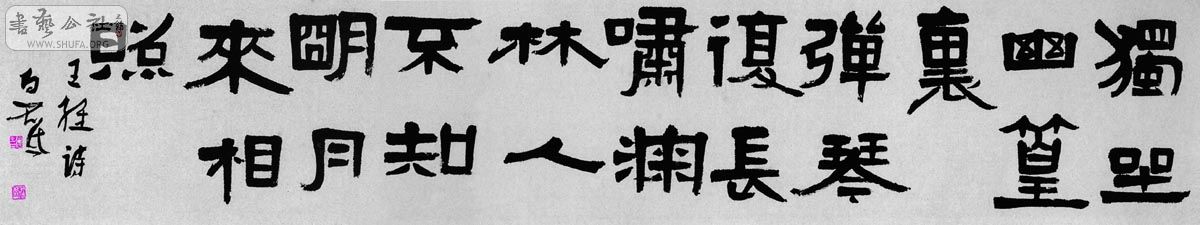 獨坐
幽篁
裏
彈琴
復長
嘯深
林人
不知
明月
來相
照
王維詩
書藝公社
WWW.SHUFA.ORG